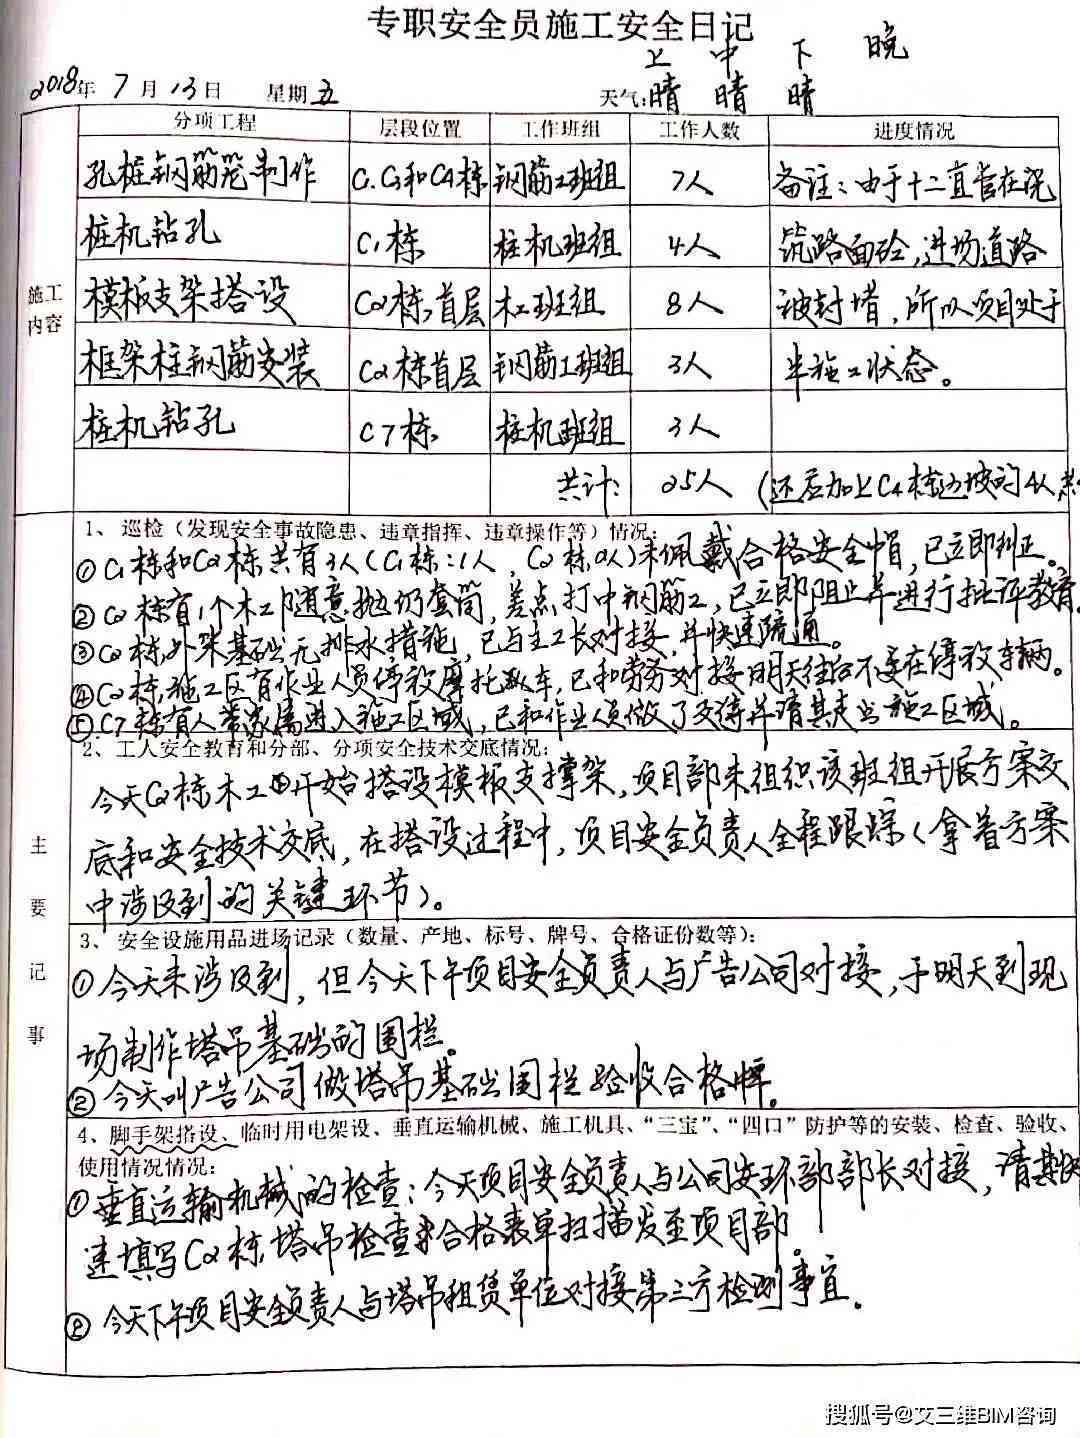 专职安全员施工安全日记
上 中 下 晚
2018年7月13日 星期五 天气:晴 晴 晴
分项工程 层段位置 工作班组 工作人数 进度情况
孔桩钢筋笼制作 C1.C3和C4栋 钢筋工班组 7人 备注:由于十二直管在浇
桩机钻孔 C1栋 桩机班组 4人 筑路面砼,进场道路
施工
内容
模板支架搭设 C2栋,首层 木工班组 8人 被封堵,所以项目处于
框架柱钢筋安装 C2栋首层 钢筋工班组 3人 半施工状态。
桩机钻孔 C7栋 桩机班组 3人
共计: 25人 (还应加上C4栋边坡的4人
1、巡检(发现安全事故隐患、违章指挥、违章操作等)情况:
①C1栋和C2栋共有3人(C1栋:1人,C2栋2人)未佩戴合格安全帽,已立即纠正。
②C2栋有1个木工随意抛扔套筒,差点打中钢筋工,已立即阻止并进行批评教育
③C2栋,外架基础无排水措施,已与主工长对接,并快速疏通。
④C2栋,施工区有作业人员停放摩托车,已和劳务对接明天往后不要在停放车辆。
⑤C7栋有人带家属进入施工区域,已和作业人员做了交待并请其走出施工区域。
2、工人安全教育和分部、分项安全技术交底情况:
今天C2栋木工开始搭设模板支撑架,项目部未组织该班组开展方案交
底和安全技术交底,在搭设过程中,项目安全负责人全程跟踪(拿着方案
中涉及到的关键环节)。
主
要
记
事
3、安全设施用品进场记录(数量、产地、标号、牌号、合格证份数等):
①今天未涉及到,但今天下午项目安全负责人与广告公司对接,于明天到现
场制作塔吊基础的围栏。
②今天叫广告公司做塔吊基础围栏验收合格牌。
4、脚手架搭设、临时用电架设、垂直运输机械、施工机具、“三宝”、“四口”防护等的安装、检查、验收、
使用情况情况:
①垂直运输机械的检查:今天项目安全负责人与公司安环部部长对接,请其快
速填写C2栋,塔吊检查合格表单扫描发至项目部。
②今天下午项目安全负责人与塔吊租赁单位对接第三方检测事宜。
搜狐号@艾三维BIM咨询